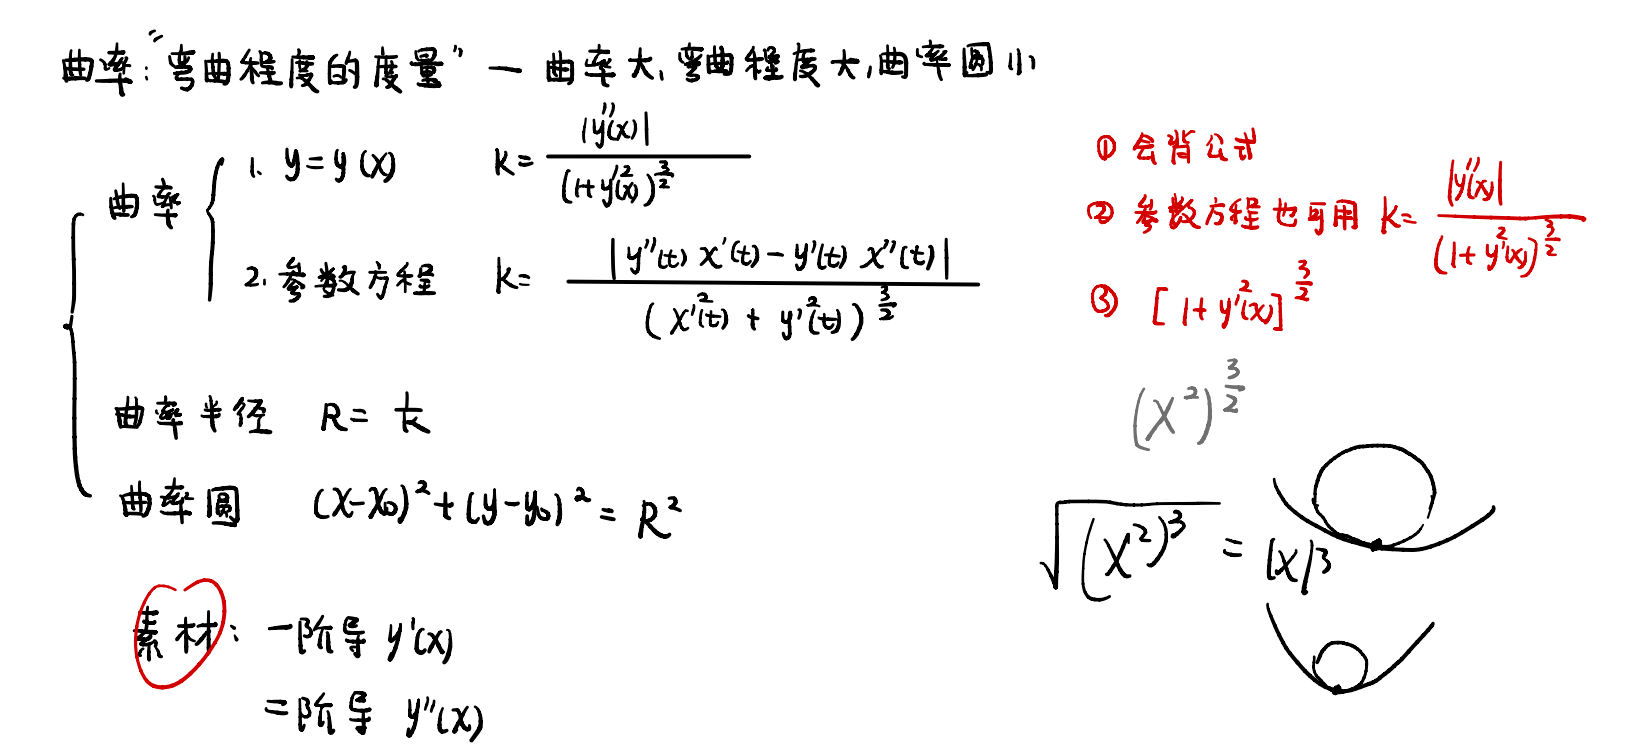 曲率："弯曲程度的度量" — 曲率大，弯曲程度大，曲率圆小
曲率
1. y=y(x) k= |y''(x)| / (1+y'²(x))^(3/2)
2. 参数方程 k= |y''(t) x'(t) - y'(t) x''(t)| / (x'²(t) + y'²(t))^(3/2)
曲率半径 R= 1/k
曲率圆 (x-x₀)²+(y-y₀)² = R²
素材： 一阶导 y'(x)
二阶导 y''(x)
① 会背公式
② 参数方程也可用 k= |y''(x)| / (1+y'²(x))^(3/2)
③ [1+y'²(x)]^(3/2)
(x²)^(3/2)
√(x²)³ = |x|³